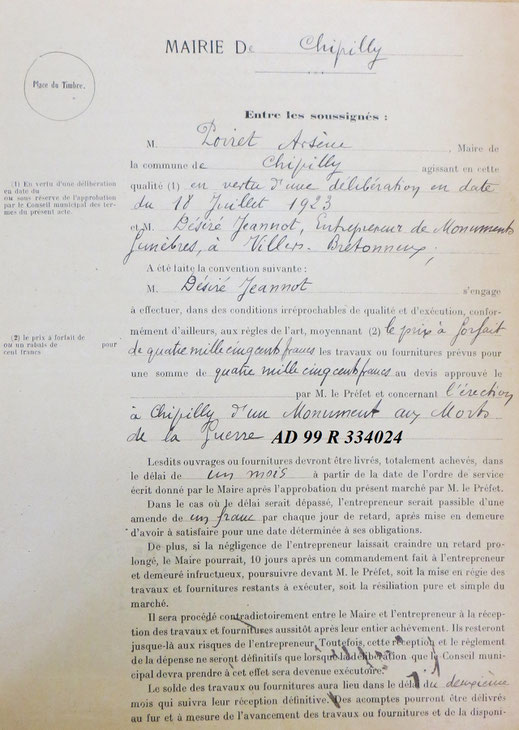 MAIRIE De Chipilly
Place du Timbre.
Entre les soussignés :
M. Poiret Arsène, Maire de
la commune de Chipilly agissant en cette
(1) En vertu d'une délibération
en date du
ou sous réserve de l'approbation
par le Conseil municipal des ter-
mes du présent acte.
qualité (1) en vertu d'une délibération en date
du 18 Juillet 1923
et M. Désiré Jeannot, Entrepreneur de Monuments
funèbres, à Villers-Bretonneux,
A été faite la convention suivante :
M. Désiré Jeannot s'engage
à effectuer, dans des conditions irréprochables de qualité et d'exécution, confor-
(2) le prix à forfait de
ou un rabais de pour
cent francs
mément d'ailleurs, aux règles de l'art, moyennant (2) le prix à forfait
de quatre mille cinq cents francs les travaux ou fournitures prévus pour
une somme de quatre mille cinq cents francs au devis approuvé le
par M. le Préfet et concernant l'érection
à Chipilly d'un Monument aux Morts
de la Guerre AD 99 R 334024
Lesdits ouvrages ou fournitures devront être livrés, totalement achevés, dans
le délai de un mois à partir de la date de l'ordre de service
écrit donné par le Maire après l'approbation du présent marché par M. le Préfet.
Dans le cas où le délai serait dépassé, l'entrepreneur serait passible d'une
amende de un franc par chaque jour de retard, après mise en demeure
d'avoir à satisfaire pour une date déterminée à ses obligations.
De plus, si la négligence de l'entrepreneur laissait craindre un retard pro-
longé, le Maire pourrait, 10 jours après un commandement fait à l'entrepreneur
et demeuré infructueux, poursuivre devant M. le Préfet, soit la mise en régie des
travaux et fournitures restants à exécuter, soit la résiliation pure et simple du
marché.
Il sera procédé contradictoirement entre le Maire et l'entrepreneur à la récep-
tion des travaux et fournitures aussitôt après leur entier achèvement. Ils resteront
jusque-là aux risques de l'entrepreneur. Toutefois, cette réception et le règlement
de la dépense ne seront définitifs que lorsque la délibération que le Conseil muni-
cipal devra prendre à cet effet sera devenue exécutoire.
Le solde des travaux ou fournitures aura lieu dans le délai du deuxième
mois qui suivra leur réception définitive. Des acomptes pourront être délivrés
au fur et à mesure de l'avancement des travaux ou fournitures et de la disponi-